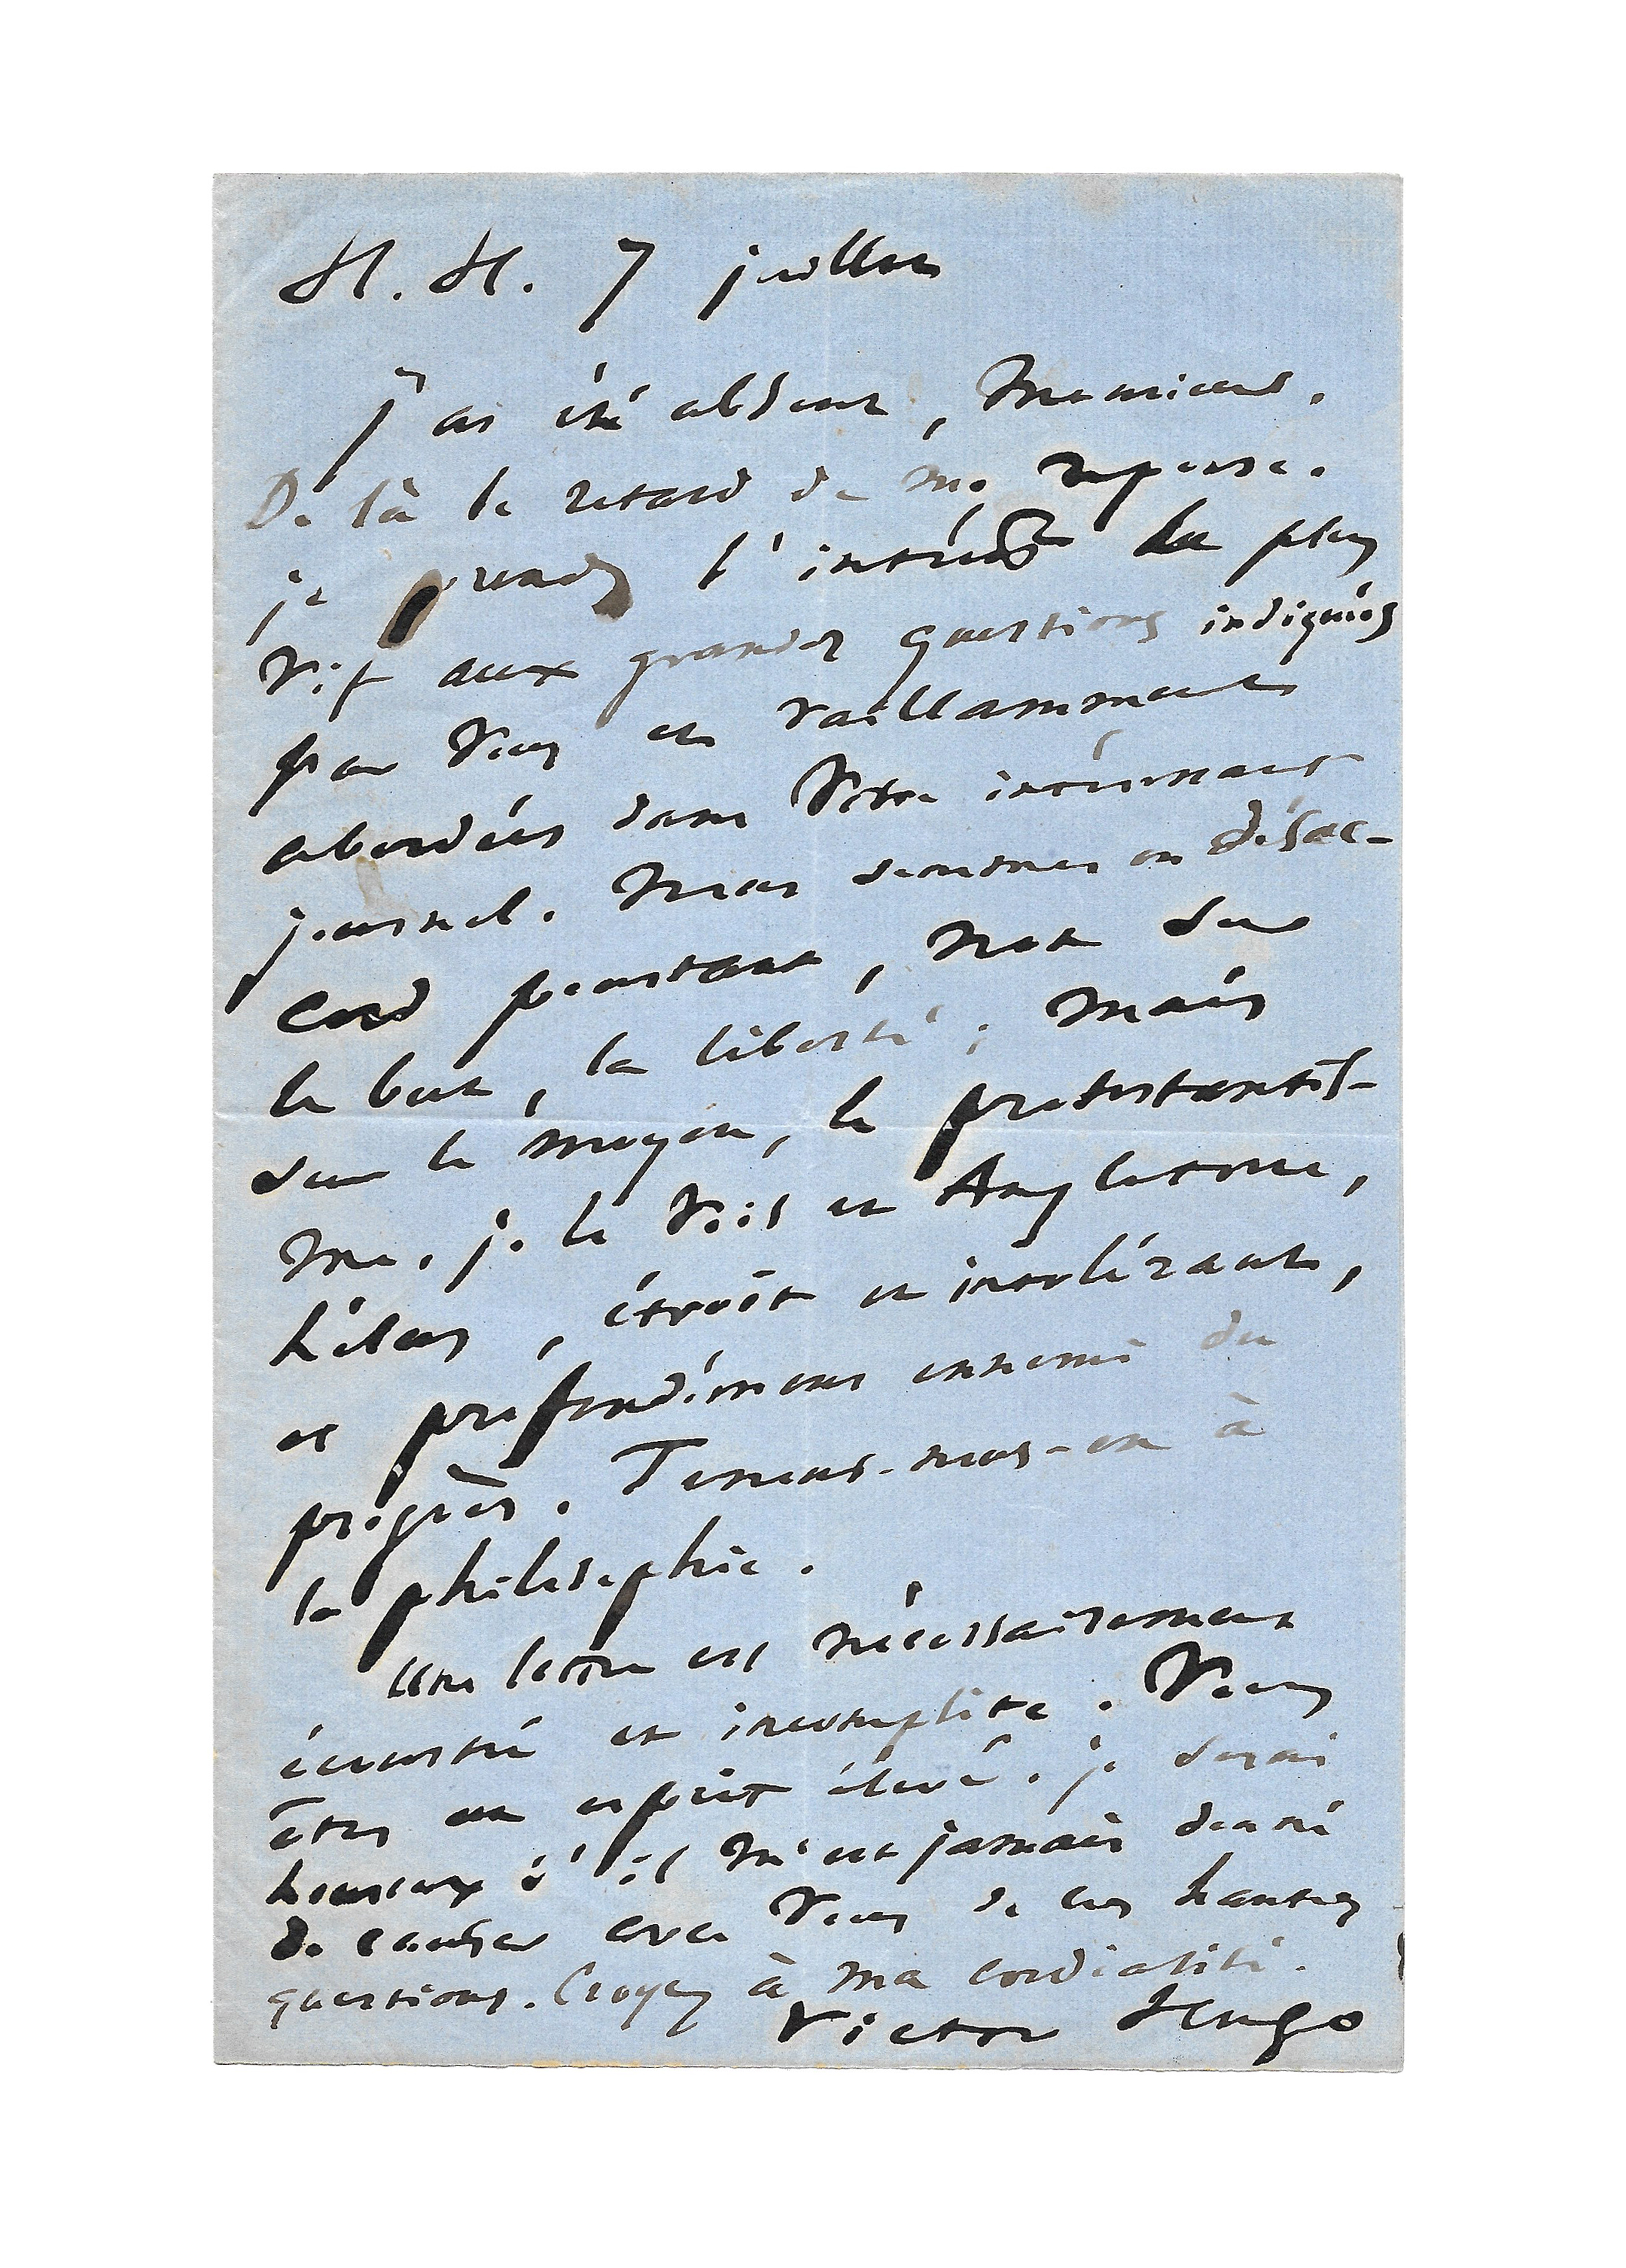 H. H. 7 juillet
J'ai été absent, Monsieur.
De là le retard de ma réponse.
je prends l'intérêt le plus
vif aux grandes questions indiquées
par vous et vaillamment
abordées dans votre intéressant
journal. Nous sommes en désac-
cord pourtant, non sur
le but, la liberté ; mais
sur le moyen, le protestantis-
me. je le vois en Angleterre,
hélas, étroit et intolérant,
et profondément ennemi du
progrès. Tenons-nous-en à
la philosophie.
Une lettre est nécessairement
écourtée et incomplète. Vous
êtes un esprit élevé. je serai
heureux s'il m'est jamais donné
de causer avec vous de ces hautes
questions. Croyez à ma cordialité.
Victor Hugo